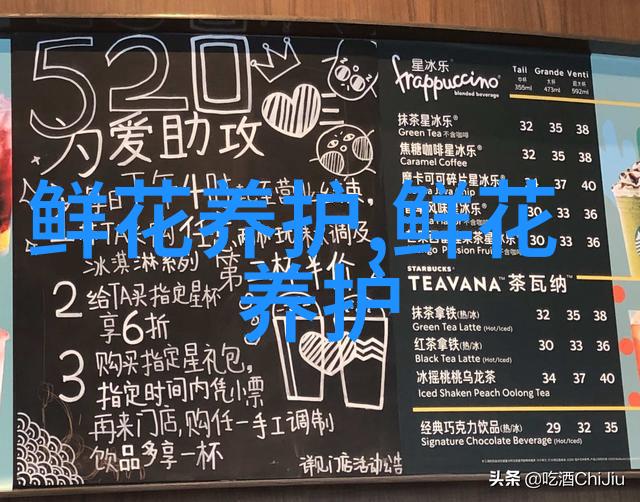 520
为爱助攻
鲜花养护,鲜花
养护
冰淇淋系列 第二杯半价
2 给TA买指定星杯
享6折
3 购买指定星礼包,
指定时间内凭小票
再来门店,购任一手工调制
饮品多享一杯
详见门店活动公告
星冰乐®
frappuccino®
blended beverage
Tall Grande Venti
中杯 大杯 超大杯
355ml 473ml 592ml
抹茶星冰乐® 32 35 38
Green Tea 不含咖啡
焦糖咖啡星冰乐® 32 35 38
Caramel Coffee
摩卡可可碎片星冰乐® 37 40
Java Chip
风味星冰乐® 30 33 36
30 33 36
Passion Fruit
STARBUCKS®
TEAVANA™ 茶瓦纳™
抹茶拿铁(热/冰) 32 35 38
Green Tea Latte (Hot/Iced)
红茶拿铁(热/冰) 30 33 36
Black Tea Latte (Hot/Iced)
冰摇桃桃乌龙茶 34 37 40
Iced Shaken Peach Oolong Tea
经典巧克力饮品(热/冰) 29 32 35
Signature Chocolate Beverage (Hot/Iced)
头条 @吃酒ChiJiu